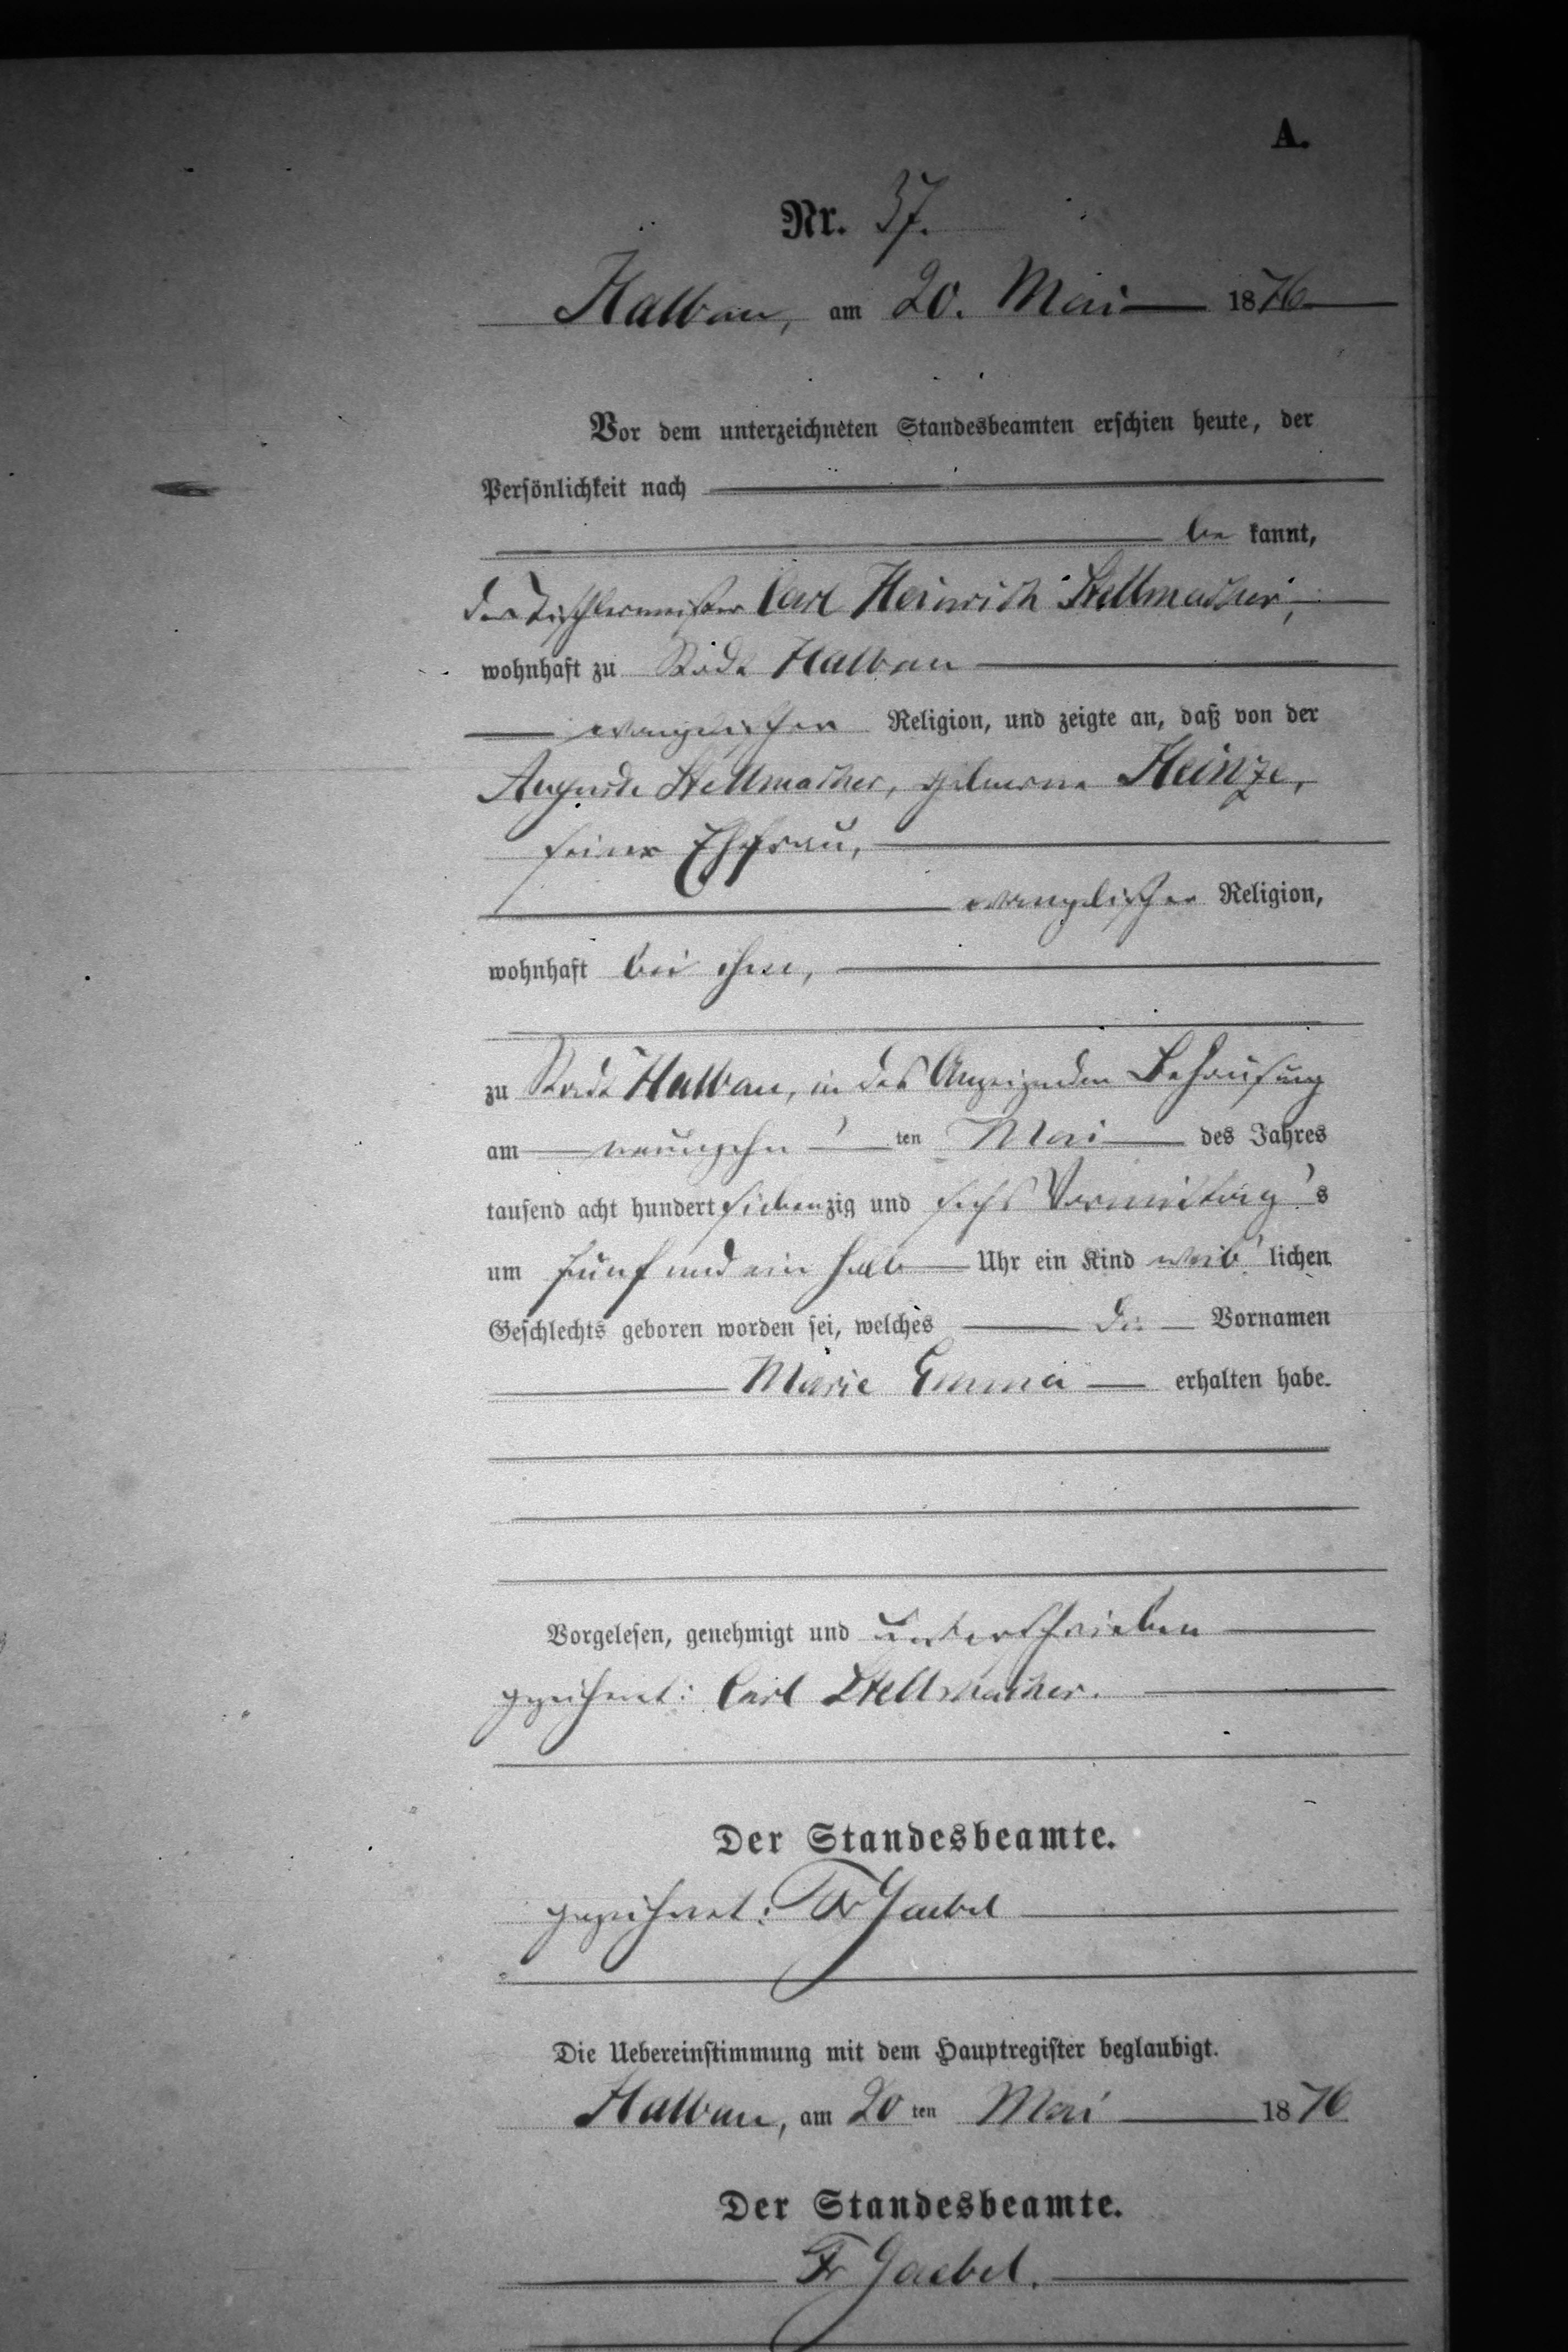 A.
Nr. 37.
Halbau, am 20. Mai 1876
Vor dem unterzeichneten Standesbeamten erschien heute, der
Persönlichkeit nach
be kannt,
der Tischlermeister Carl Heinrich Stellmacher,
wohnhaft zu Stadt Halbau
evangelischer Religion, und zeigte an, daß von der
Auguste Stellmacher, geborene Heinze,
seiner Ehefrau,
evangelischer Religion,
wohnhaft bei ihm,
zu Stadt Halbau, in des Anzeigenden Behausung
am neunzehn ten Mai des Jahres
tausend acht hundert siebenzig und sechs Vormittag s
um fünf und ein halb Uhr ein Kind weib lichen
Geschlechts geboren worden sei, welches die Vornamen
Marie Emma erhalten habe.
Vorgelesen, genehmigt und unterschrieben
gezeichnet: Carl Stellmacher.
Der Standesbeamte.
gezeichnet: Fr Gaebel
Die Uebereinstimmung mit dem Hauptregister beglaubigt.
Halbau, am 20 ten Mai 1876
Der Standesbeamte.
Fr Gaebel.